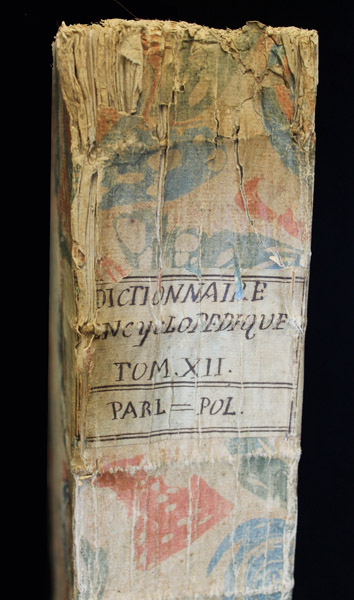 DICTIONNAIRE
ENCYCLOPEDIQUE
TOM. XII.
PARL=POL.